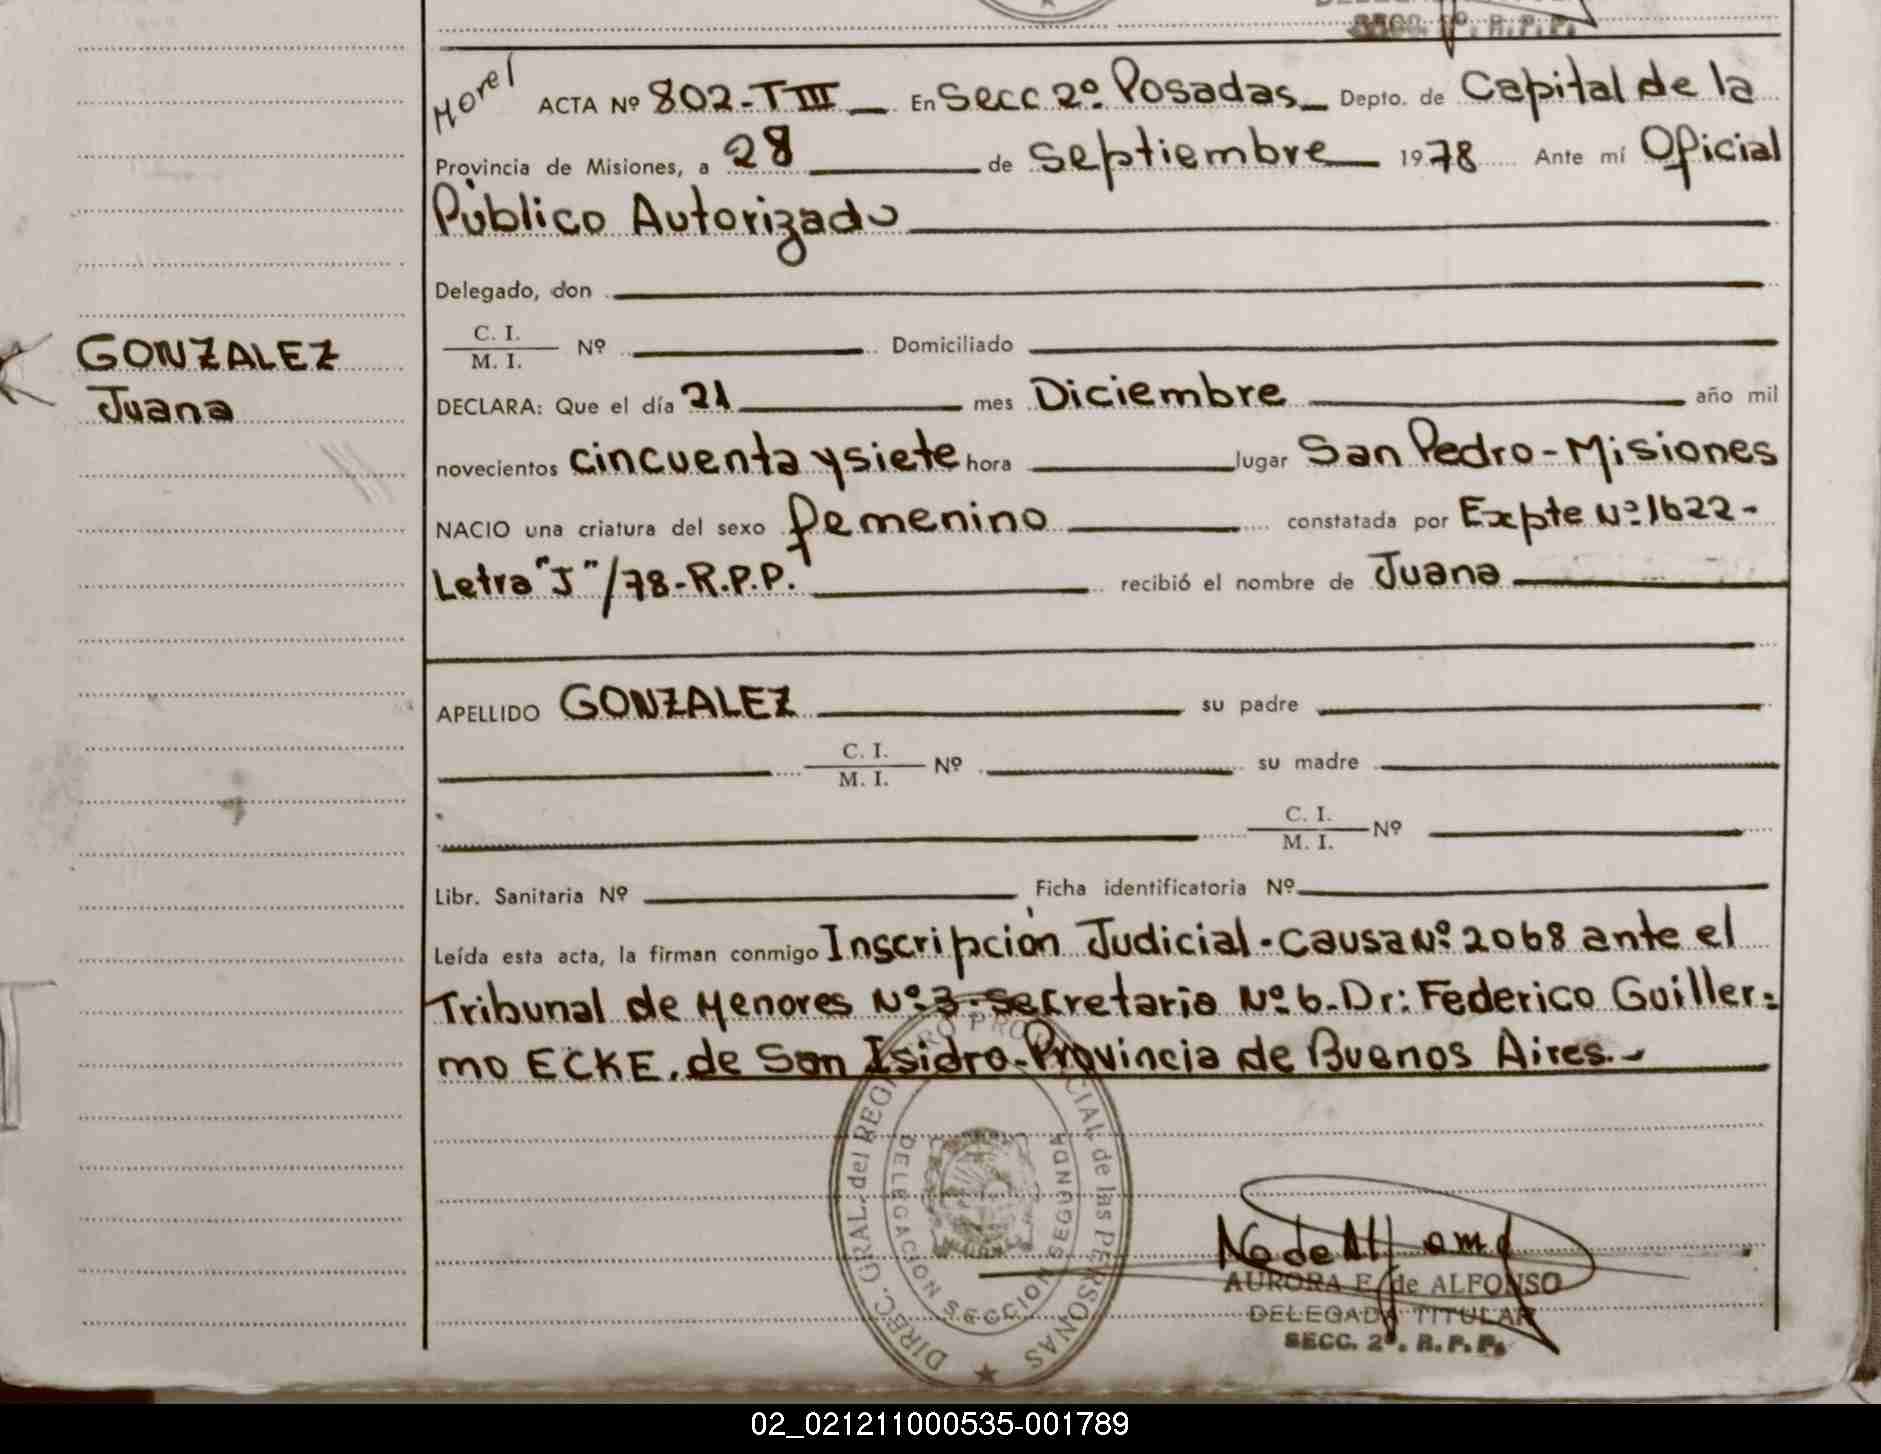 SECC. 2º. R.P.P.
Morel
ACTA Nº 802-T III En Secc 2º Posadas Depto. de Capital de la
Provincia de Misiones, a 28 de Septiembre 1978 Ante mí Oficial
Público Autorizado
Delegado, don
C. I.
M. I.
Nº Domiciliado
GONZALEZ
Juana
DECLARA: Que el día 21 mes Diciembre año mil
novecientos cincuenta y siete hora lugar San Pedro-Misiones
NACIO una criatura del sexo femenino constatada por Expte Nº 1622-
Letra "J"/78-R.P.P. recibió el nombre de Juana
APELLIDO GONZALEZ su padre
C. I.
M. I.
Nº su madre
C. I.
M. I.
Nº
Libr. Sanitaria Nº Ficha identificatoria Nº
Leída esta acta, la firman conmigo Inscripción Judicial-Causa Nº 2068 ante el
Tribunal de Menores Nº 3-Secretaria Nº 6-Dr: Federico Guiller=
mo ECKE, de San Isidro-Provincia de Buenos Aires.-
DIREC. GRAL. del REGISTRO PROVINCIAL de las PERSONAS
DELEGACION SECCION SEGUNDA
AURORA E. de ALFONSO
DELEGADA TITULAR
SECC. 2º. R.P.P.
02_021211000535-001789